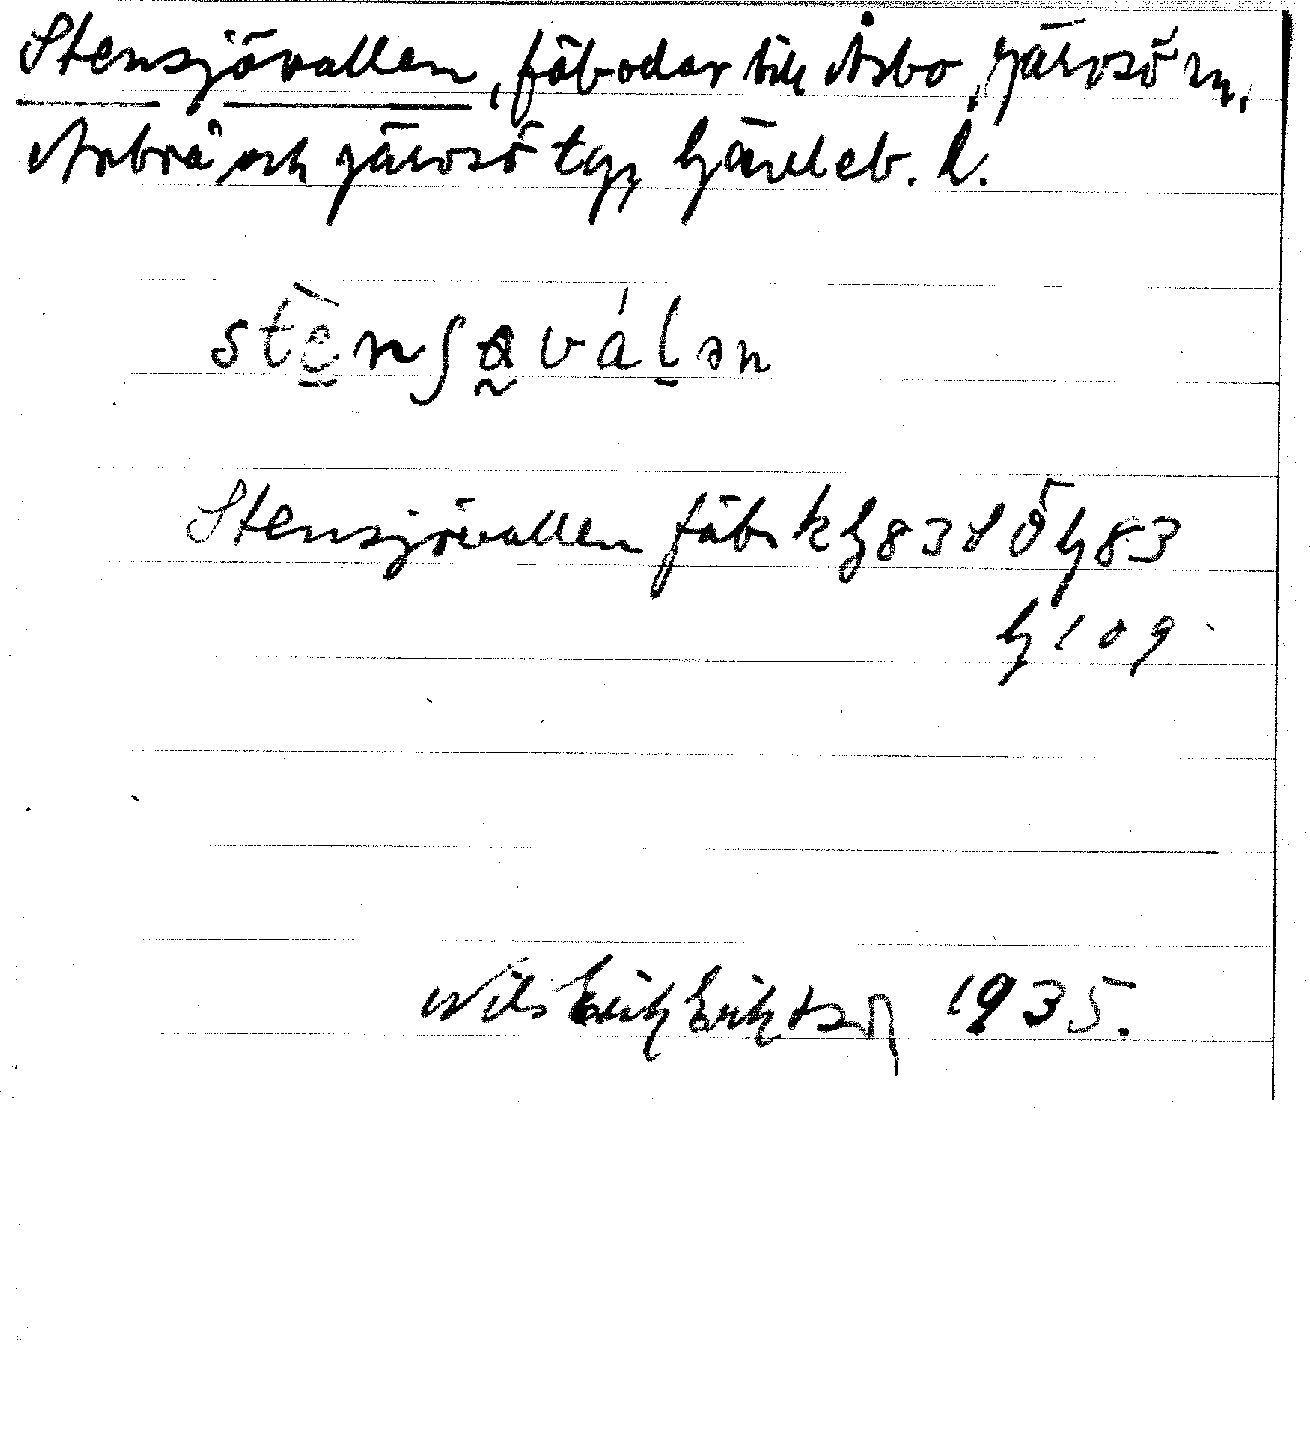 Stensjövallen, fäbodar till Åsbo, Järvsö sn,
Arbrå och Järvsö tg, Gävleb. l.
stènʃa̰válən
Stensjövallen fäb. k H 83 S Ö H 83
H 109
Nils Erik Eriksson 1935.